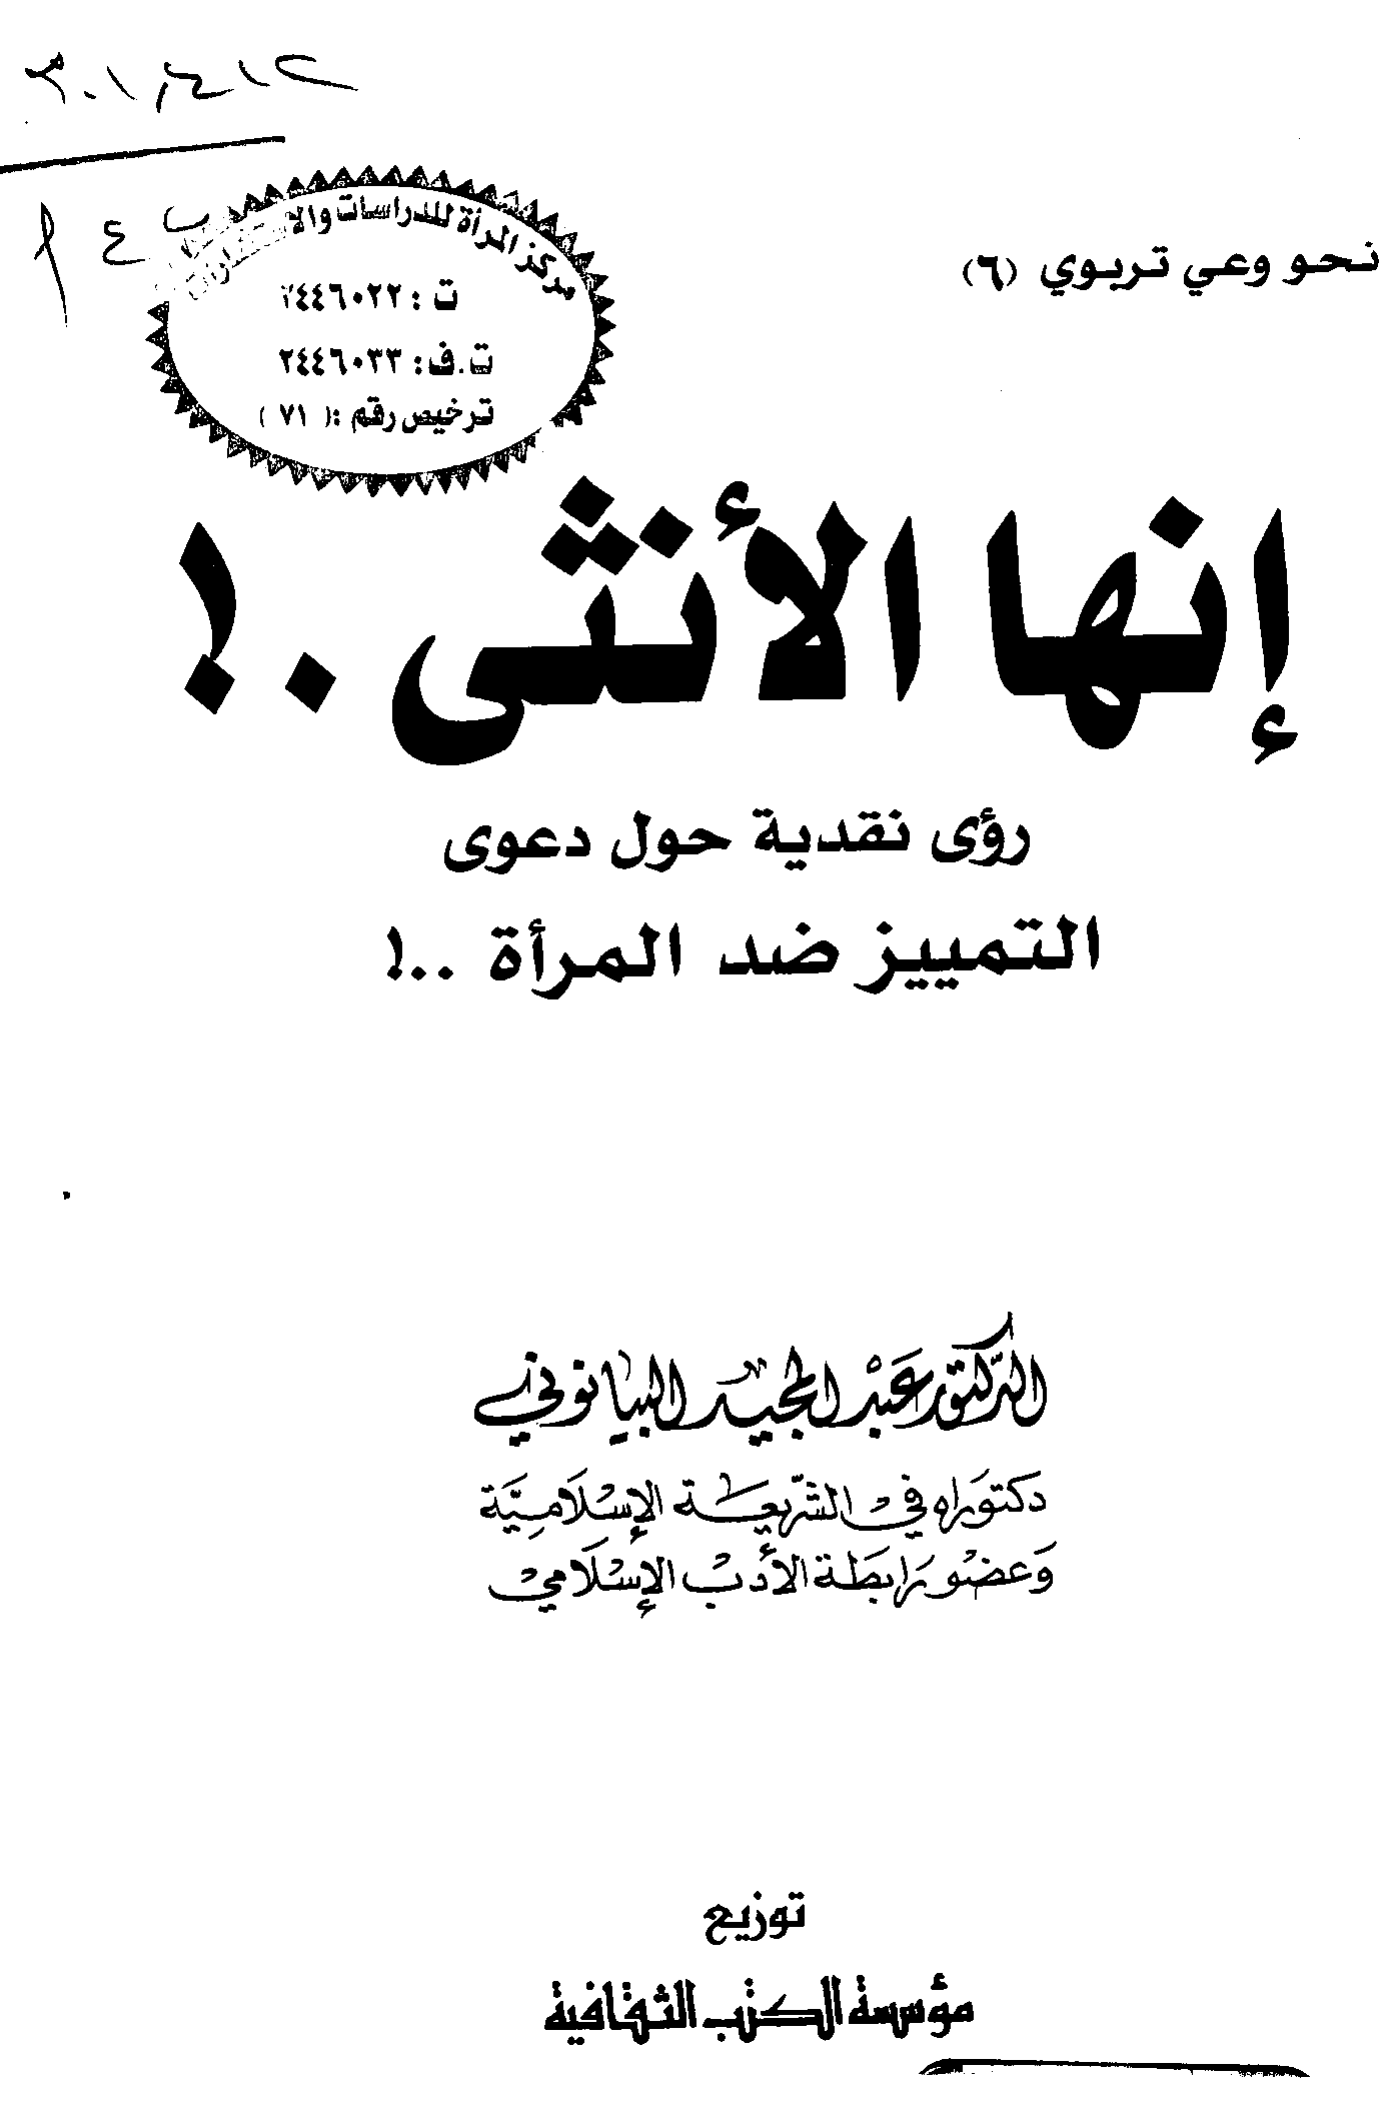 نحو وعي تربوي (٦)
مركز المرأة للدراسات
ت : ٢٤٤٦٠٢٢
ت.ف: ٢٤٤٦٠٣٣
ترخيص رقم :( ٧١ )
إنها الأنثى ..!
رؤى نقدية حول دعوى
التمييز ضد المرأة ..!
الدّكتور عَبْد المجيد البيانوني
دكتوَراه فيْ الشّريعَة الإسْلَاميَّة
وَعضْو رَابطَة الأدبْ الإسْلَاميْ
توزيع
مؤسسة الكتب الثقافية